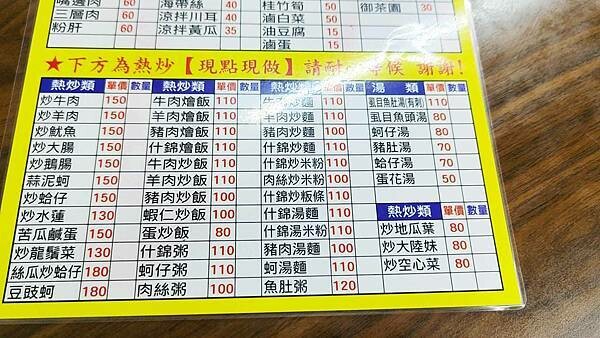 嘴邊肉 60 海帶絲 40 桂竹筍 50 御茶園 30
三層肉 60 涼拌川耳 40 滷白菜 50
粉肝 60 涼拌黃瓜 35 油豆腐 15
滷蛋 15
★下方為熱炒【現點現做】請耐心等候 謝謝!
熱炒類 單價 數量 熱炒類 單價 數量 熱炒類 單價 數量 湯 類 單價 數量
炒牛肉 150 牛肉燴飯 110 牛肉炒麵 110 虱目魚肚湯(有刺) 110
炒羊肉 150 羊肉燴飯 110 羊肉炒麵 110 虱目魚頭湯 80
炒魷魚 150 豬肉燴飯 100 豬肉炒麵 100 蚵仔湯 80
炒大腸 150 什錦燴飯 110 什錦炒麵 110 豬肚湯 70
炒鵝腸 150 牛肉炒飯 110 什錦炒米粉 110 蛤仔湯 70
蒜泥蚵 150 羊肉炒飯 110 肉絲炒米粉 100 蛋花湯 50
炒蛤仔 150 豬肉炒飯 100 什錦炒粄條 110
炒水蓮 130 蝦仁炒飯 100 什錦湯麵 110 熱炒類 單價 數量
苦瓜鹹蛋 150 蛋炒飯 80 什錦湯米粉 110 炒地瓜葉 80
炒龍鬚菜 130 什錦粥 110 豬肉湯麵 100 炒大陸妹 80
絲瓜炒蛤仔 180 蚵仔粥 110 蚵湯麵 110 炒空心菜 80
豆豉蚵 180 肉絲粥 100 魚肚粥 120